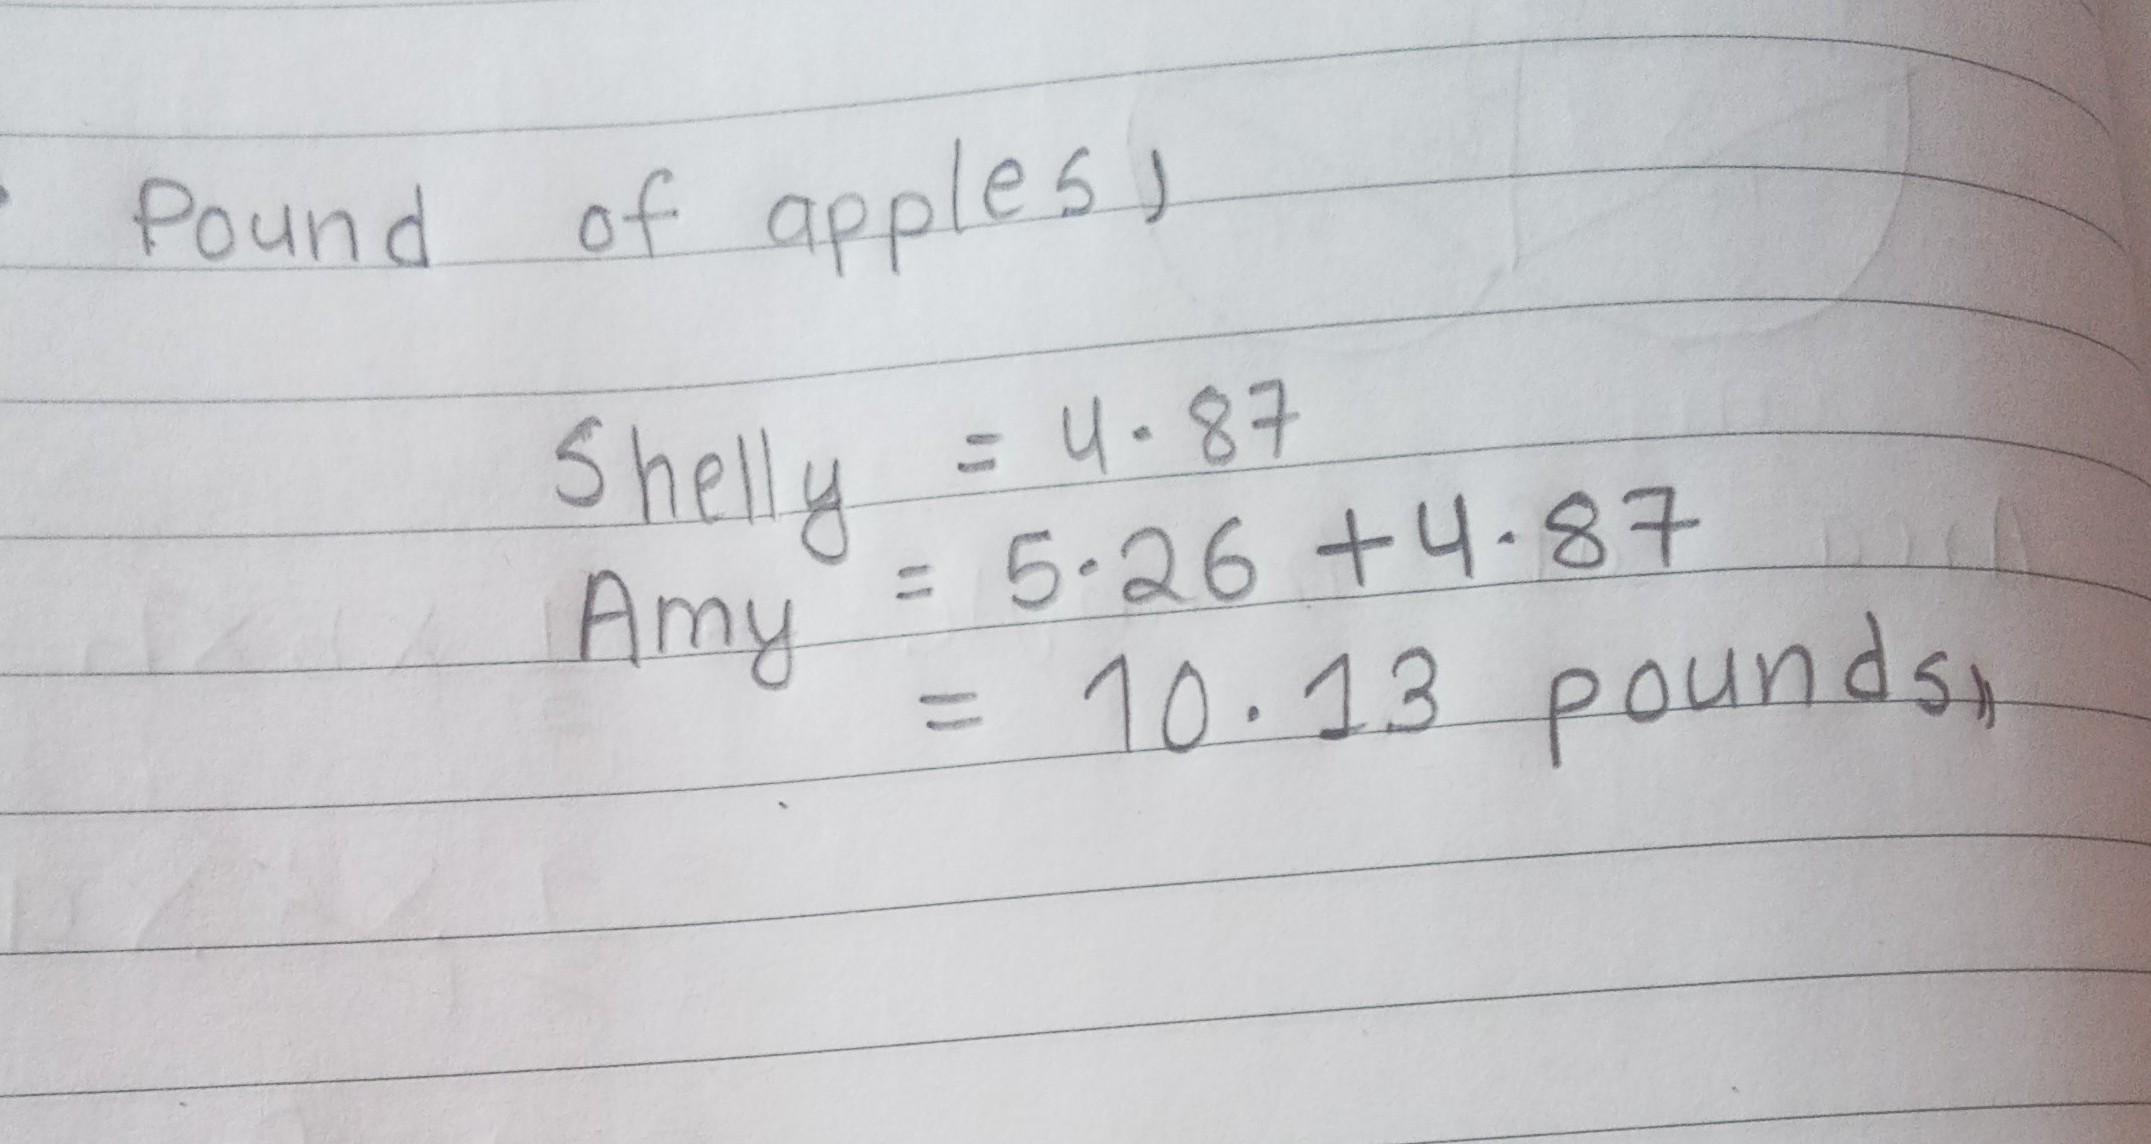 Pound of apples,
Shelly = 4.87
Amy = 5.26 + 4.87
= 10.13 pounds,,